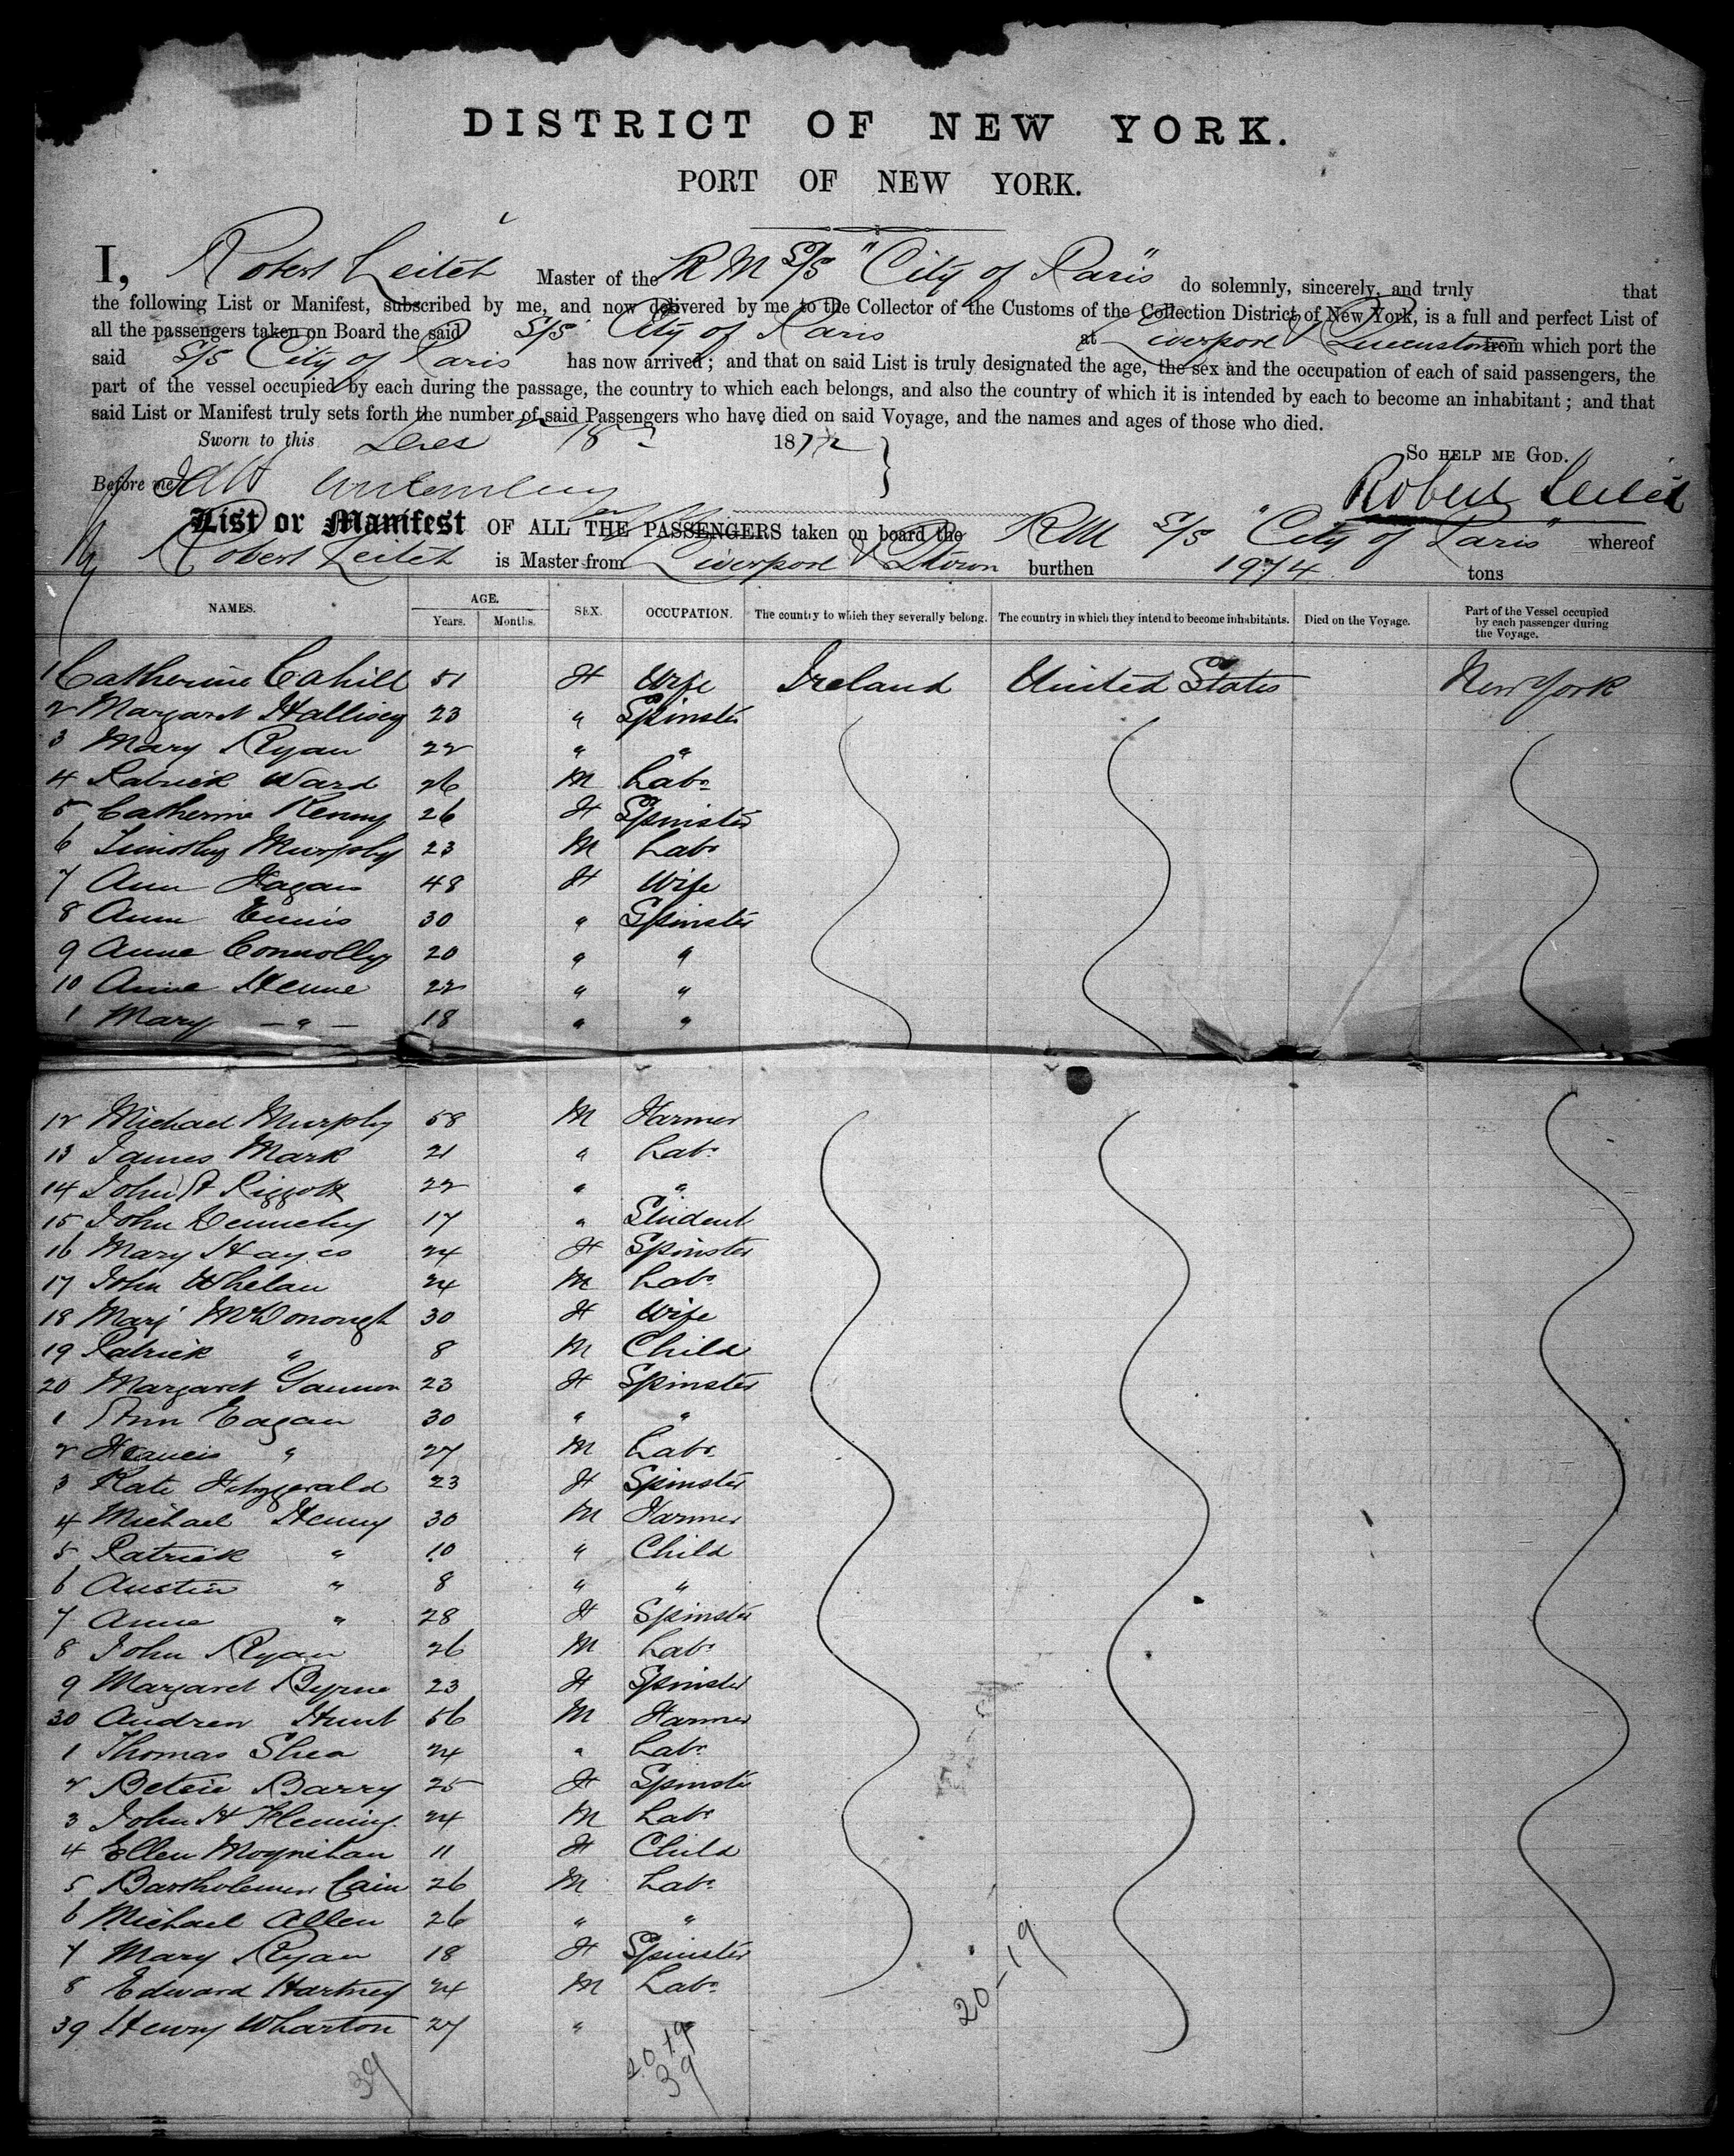 DISTRICT OF NEW YORK.
PORT OF NEW YORK.
I, Robert Leitch Master of the R M S/S "City of Paris" do solemnly, sincerely, and truly that
the following List or Manifest, subscribed by me, and now delivered by me to the Collector of the Customs of the Collection District of New York, is a full and perfect List of
all the passengers taken on Board the said S/S City of Paris at Liverpool & Queenstown from which port the
said S/S City of Paris has now arrived; and that on said List is truly designated the age, the sex and the occupation of each of said passengers, the
part of the vessel occupied by each during the passage, the country to which each belongs, and also the country of which it is intended by each to become an inhabitant; and that
said List or Manifest truly sets forth the number of said Passengers who have died on said Voyage, and the names and ages of those who died.
Sworn to this 18 1872
So HELP ME GOD.
Before me
Robert Leitch
List or Manifest OF ALL THE PASSENGERS taken on board the RM S/S "City of Paris" whereof
Robert Leitch is Master from Liverpool & Qtown burthen 1974 tons
NAMES. AGE. Years. Months. SEX. OCCUPATION. The country to which they severally belong. The country in which they intend to become inhabitants. Died on the Voyage. Part of the Vessel occupied by each passenger during the Voyage.
1 Catherine Cahill 51 F Wife Ireland United States New York
2 Margaret Hallisey 23 " Spinster
3 Mary Ryan 22 " "
4 Patrick Ward 26 M Labr
5 Catherine Kenny 26 F Spinster
6 Timothy Murphy 23 M Labr
7 Ann Fagan 48 F Wife
8 Ann Ennis 30 " Spinster
9 Anne Connolly 20 " "
10 Anne Henne 22 " "
1 Mary — " — 18 " "
12 Michael Murphy 58 M Farmer
13 James Mark 21 " Labr
14 John A Piggott 22 " "
15 John Dennehy 17 " Student
16 Mary Hayes 24 F Spinster
17 John Whelan 24 M Labr
18 Mary McDonough 30 F Wife
19 Patrick " 8 M Child
20 Margaret Gannon 23 F Spinster
1 Ann Eagan 30 " "
2 Francis " 27 M Labr
3 Kate Fitzgerald 23 F Spinster
4 Michael Henny 30 M Farmer
5 Patrick " 10 " Child
6 Austin " 8 " "
7 Anne " 28 F Spinster
8 John Ryan 26 M Labr
9 Margaret Byrne 23 F Spinster
30 Andrew Hunt 56 M Farmer
1 Thomas Shea 24 " Labr
2 Betsie Barry 25 F Spinster
3 John H Fleming 24 M Labr
4 Ellen Moynihan 11 F Child
5 Bartholemew Cain 26 M Labr
6 Michael Allen 26 " "
7 Mary Ryan 18 F Spinster
8 Edward Hartney 24 M Labr
39 Henry Wharton 27 " "
20-19
20 19
39
39